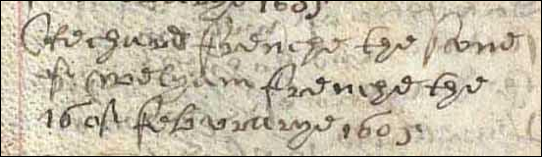 1605
Rechard frenche the sone
of wolyam frenche the
16 of februarye 1605